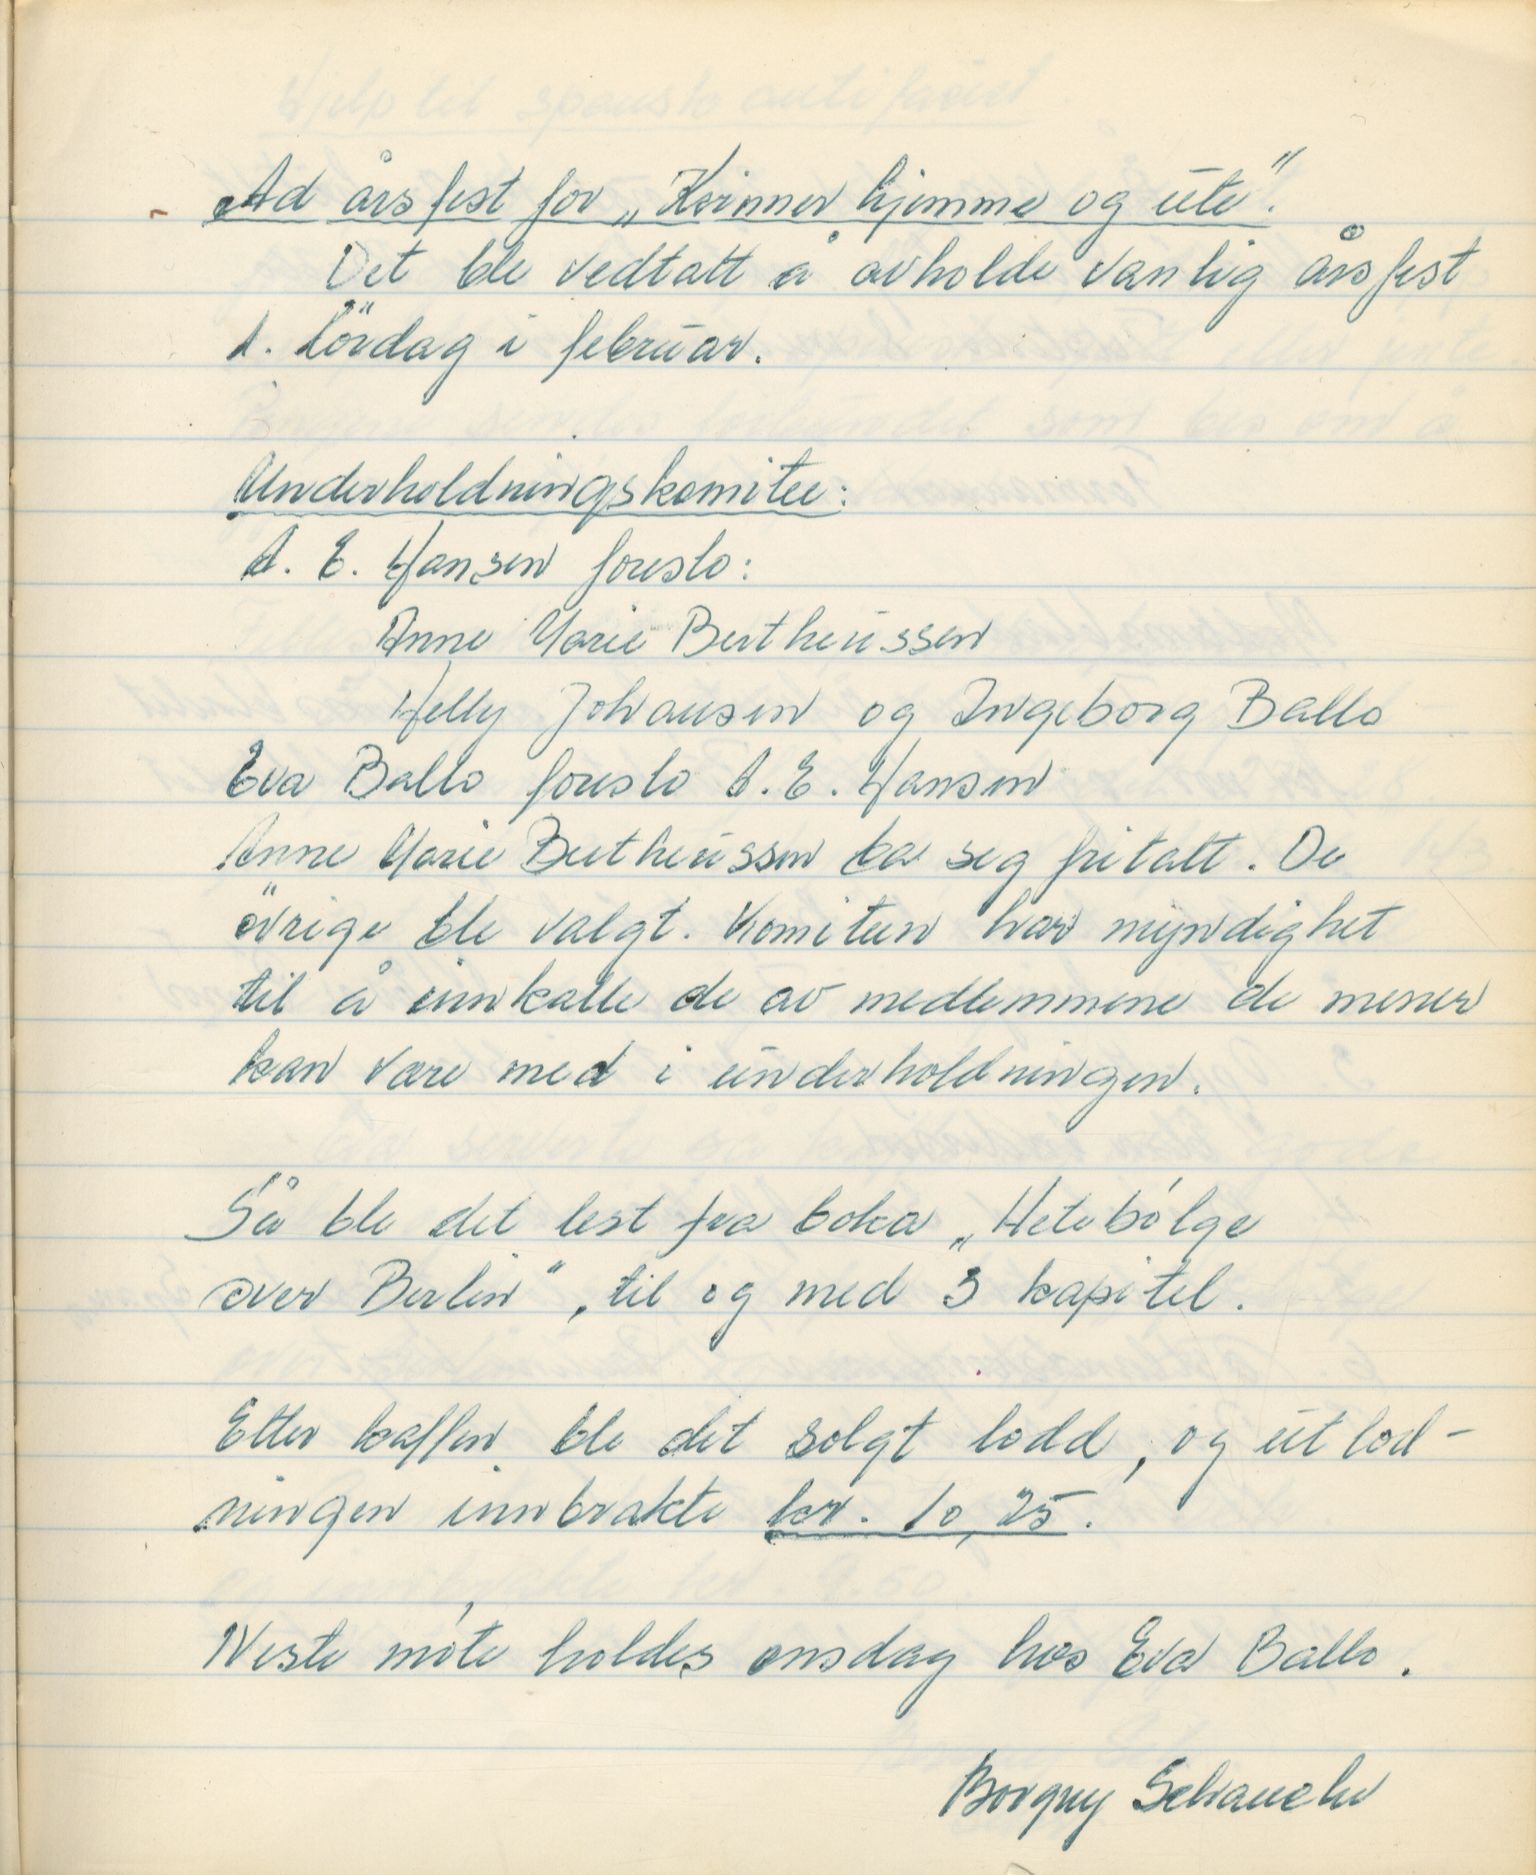 Ad årsfest for „Kvinner hjemme og ute".
Det ble vedtatt å avholde vanlig årsfest
1. lördag i februar.
Underholdningskomitee:
A. E. Hansen foreslo:
Anne Marie Bertheussen
Helly Johansen og Ingeborg Ballo
Eva Ballo foreslo A. E. Hansen
Anne Marie Bertheussen ba seg fritatt. De
övrige ble valgt. Komiteen har myndighet
til å innkalle de av medlemmene de mener
kan være med i underholdningen.
Så ble det lest fra boka „Hetebølge
over Berlin", til og med 3 kapitel.
Etter kaffen ble det solgt lodd, og utlod-
ningen innbrakte kr. 10,25.
Neste møte holdes onsdag hos Eva Ballo.
Borgny Schanche